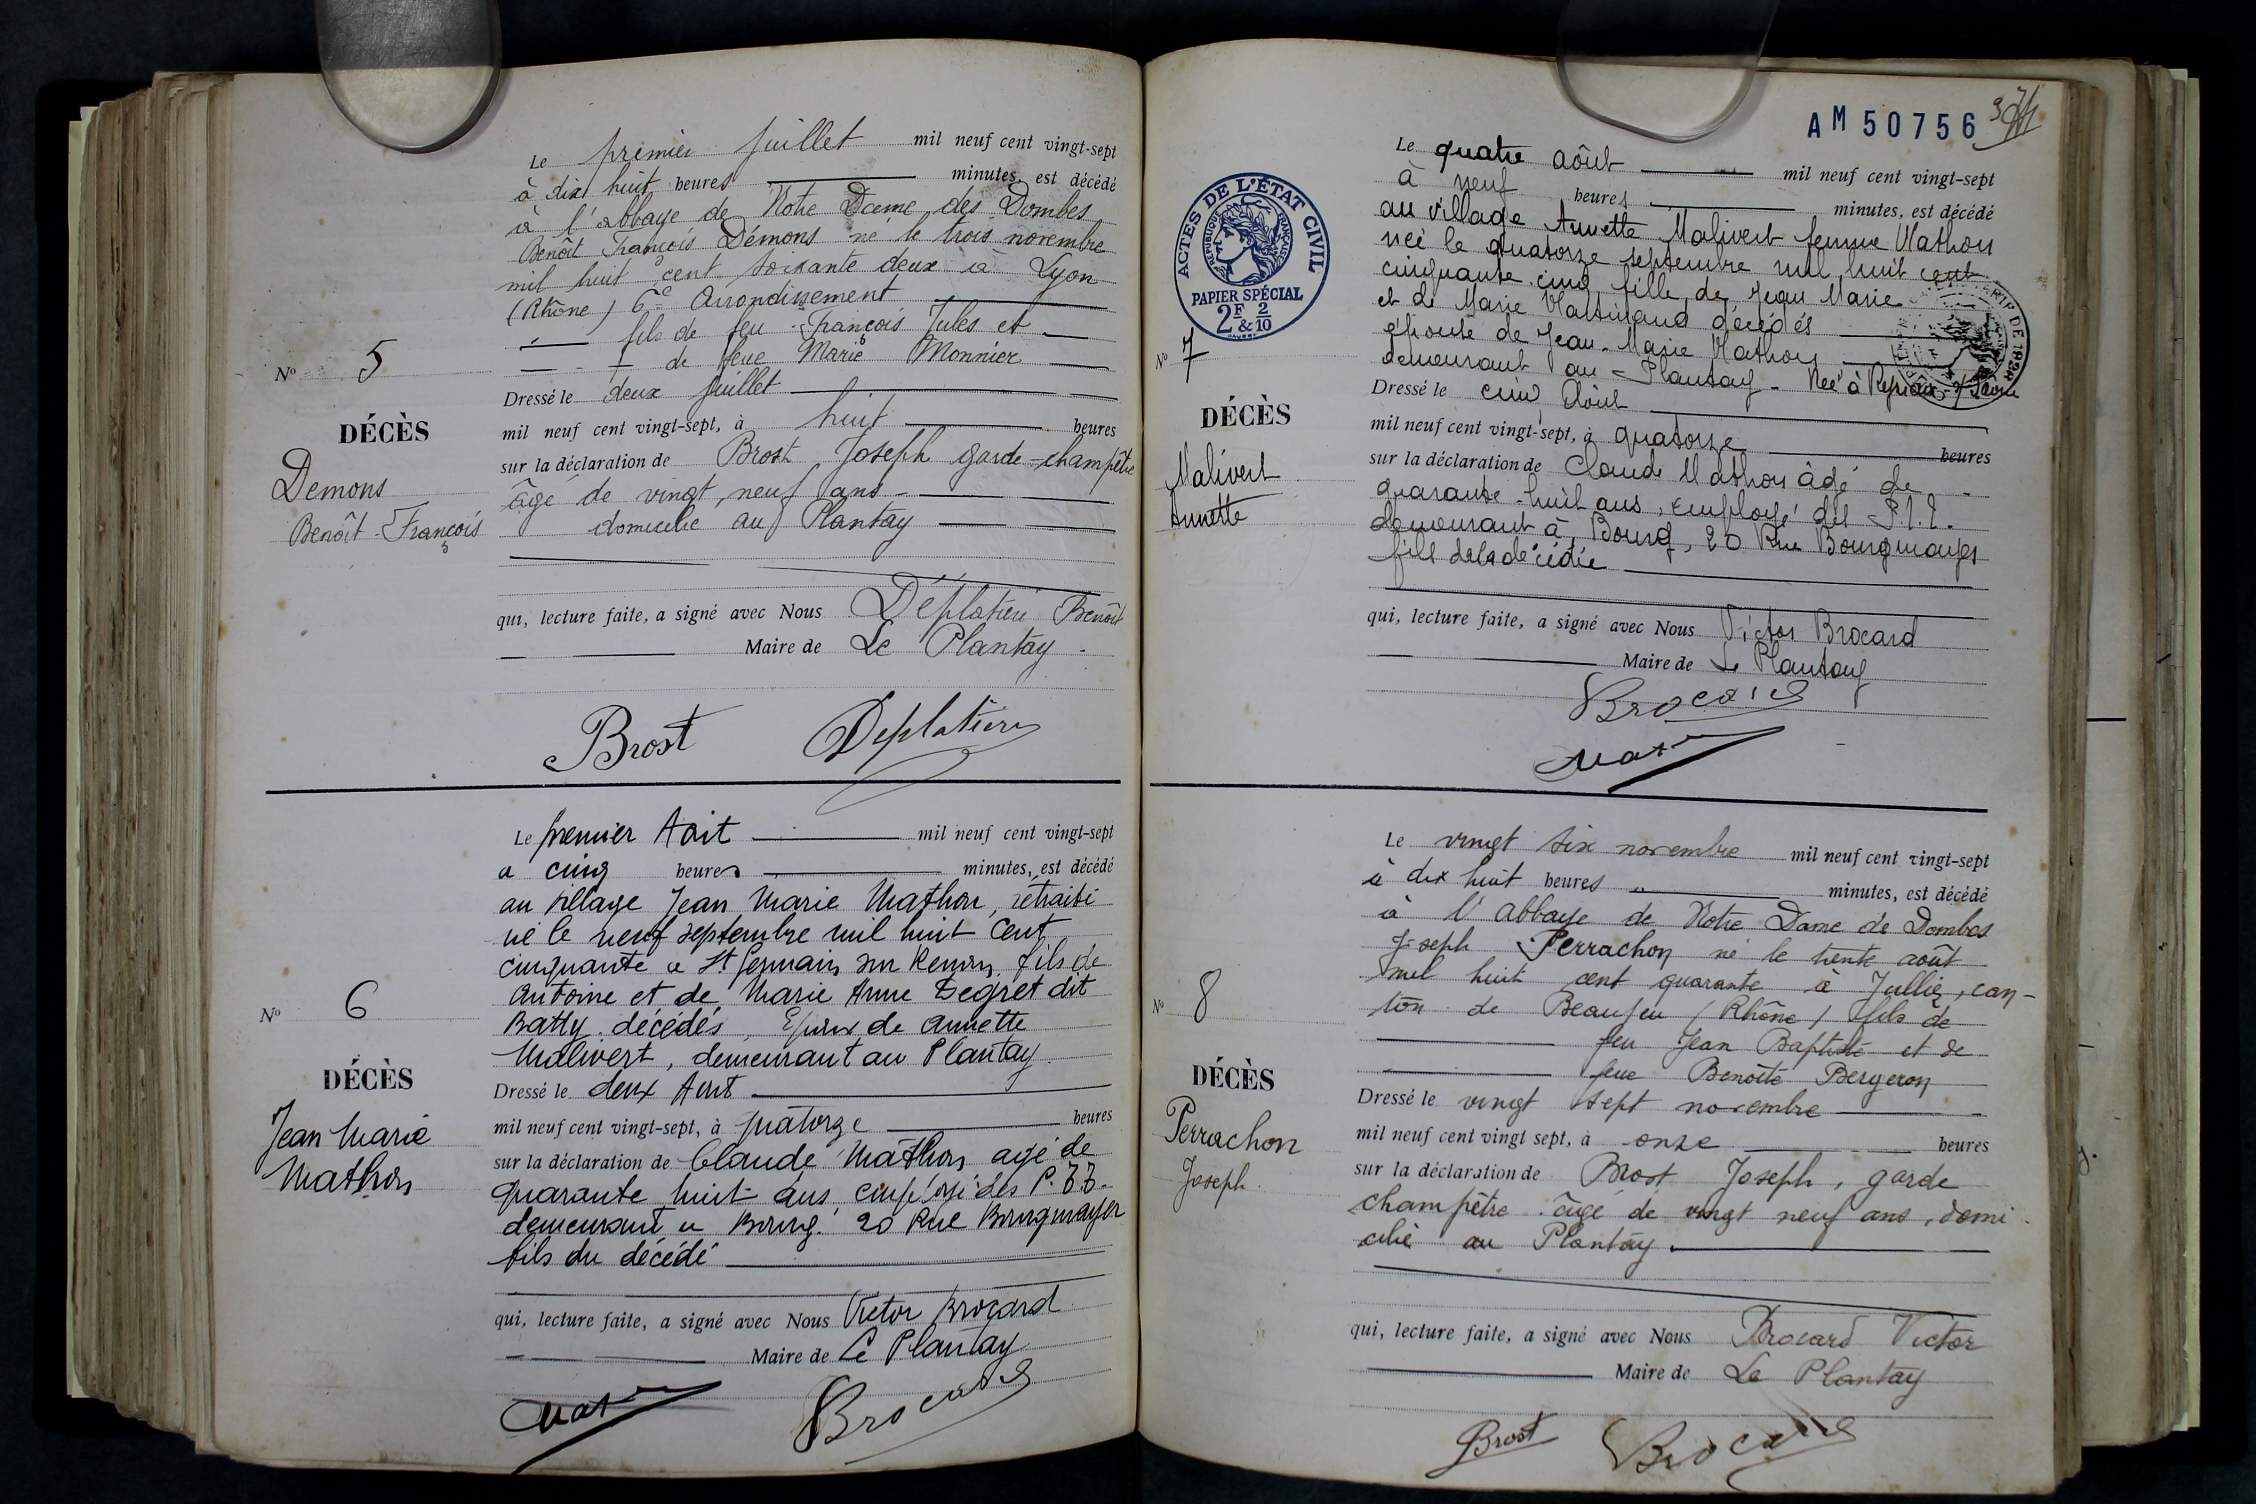 Le premier juillet mil neuf cent vingt-sept
à dix huit heures minutes, est décédé
à l'abbaye de Notre Dame des Dombes
Benoît François Démons né le trois novembre
mil huit cent soixante deux à Lyon
(Rhône) 6e Arrondissement
fils de feu François Jules et
de feue Marie Monnier
No 5
Dressé le deux juillet
DÉCÈS
mil neuf cent vingt-sept, à huit heures
Demons
Benoît-François
sur la déclaration de Brost Joseph garde-champêtre
âgé de vingt neuf ans
domicilié au Plantay
qui, lecture faite, a signé avec Nous Déplatière Benoît
Maire de Le Plantay
Brost Deplatière
Le premier Aout mil neuf cent vingt-sept
a cinq heures minutes, est décédé
au village Jean Marie Mathon, retraité
né le neuf septembre mil huit cent
cinquante a St Germain sur Renon fils de
Antoine et de Marie Anne Degret dit
Batty décédés, Epoux de Annette
Malivert, demeurant au Plantay
No 6
DÉCÈS
Jean Marie
Mathon
Dressé le deux Aout
mil neuf cent vingt-sept, à quatorze heures
sur la déclaration de Claude Mathon agé de
quarante huit ans, employé des P.T.T.
demeurant a Bourg. 20 Rue Bourgmayer
fils du décédé
qui, lecture faite, a signé avec Nous Victor Brocard
Maire de Le Plantay
Mathon Brocard
AM 50756
ACTES DE L'ÉTAT CIVIL
RÉPUBLIQUE FRANÇAISE
PAPIER SPÉCIAL
2F & 2/10
Le quatre aôut mil neuf cent vingt-sept
à neuf heures minutes, est décédé
au village Annette Malivert femme Mathon
née le quatorze septembre mil huit cent
cinquante cinq fille de Jean Marie
et de Marie décédés
épouse de Jean-Marie Mathon
demeurant au Plantay - Née à
No 7
DÉCÈS
Malivert
Annette
Dressé le cinq Aôut
mil neuf cent vingt-sept, à quatorze heures
sur la déclaration de Claude Mathon âdé de
quarante-huit ans, employé des P.T.T.
demeurant à Bourg, 20 Rue Bourgmayer
fils de la décédée
qui, lecture faite, a signé avec Nous Victor Brocard
Maire de Le Plantay
Brocard
Mathon
Le vingt six novembre mil neuf cent vingt-sept
à dix huit heures minutes, est décédé
à l'abbaye de Notre Dame de Dombes
Joseph Perrachon né le trente août
mil huit cent quarante à Jullié, can-
ton de Beaujeu (Rhône) fils de
feu Jean Baptiste et de
feue Benoîte Bergeron
No 8
DÉCÈS
Perrachon
Joseph
Dressé le vingt sept novembre
mil neuf cent vingt sept, à onze heures
sur la déclaration de Brost Joseph, garde
champêtre âgé de vingt neuf ans, domi-
cilié au Plantay
qui, lecture faite, a signé avec Nous Brocard Victor
Maire de Le Plantay
Brost Brocard